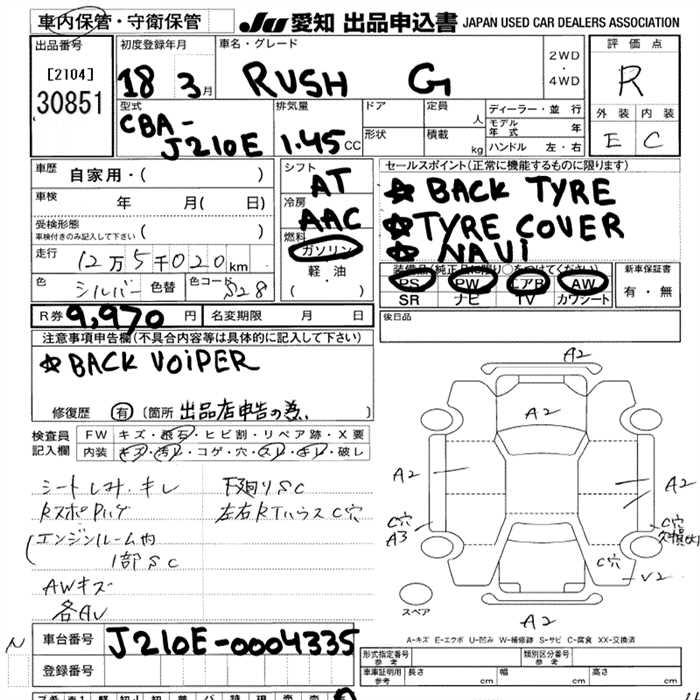 車内保管・守衛保管 JU 愛知 出品申込書 JAPAN USED CAR DEALERS ASSOCIATION
出品番号 初度登録年月 車名・グレード 2WD ・ 4WD 評価点
[2104] 18 3月 RUSH G R
30851 型式 排気量 ドア 定員 人 ディーラー・並行 外装 内装
CBA-J210E 1.45 CC 形状 積載 kg モデル年式 年 E C
ハンドル 左・右
車歴 自家用・( ) シフト AT セールスポイント(正常に機能するものに限ります)
車検 年 月( 日) 冷房 AAC ☆ BACK TYRE
受検形態 車検付きのみ記入して下さい ( ) 燃料 ☆ TYRE COVER
走行 12万5千020km ガソリン ☆ NAVI
軽・油 装備品(純正品に限り○をつけてください) 新車保証書
色 シルバー 色替 色コード S28 ・( ) PS PW エアB AW 有・無
SR ナビ TV カワシート
R券 9,970円 名変期限 月 日 後日品
注意事項申告欄(不具合内容等は具体的に記入して下さい)
☆ BACK VOIPER
修復歴 有 (箇所 出品店申告の為、 )
検査員記入欄 FW キズ・飛石・ヒビ割・リペア跡・X要
内装 キズ・汚れ・コゲ・穴・スレ・キレ・破し
シートしみ、キレ 下廻りSC
エンジンルーム内 左右RTハウスC穴
1部SC
AWキズ
A2
A2
A2 A2
C穴 A3 C穴
C穴
V2
スペア A2
A-キズ E-エクボ U-凹み W-補修跡 S-サビ C-腐食 XX-交換済
N 車台番号 J210E-0004335 形式指定番号 参考 類別区分番号 参考
登録番号 車庫証明用 参考 長さ cm 幅 cm 高さ cm